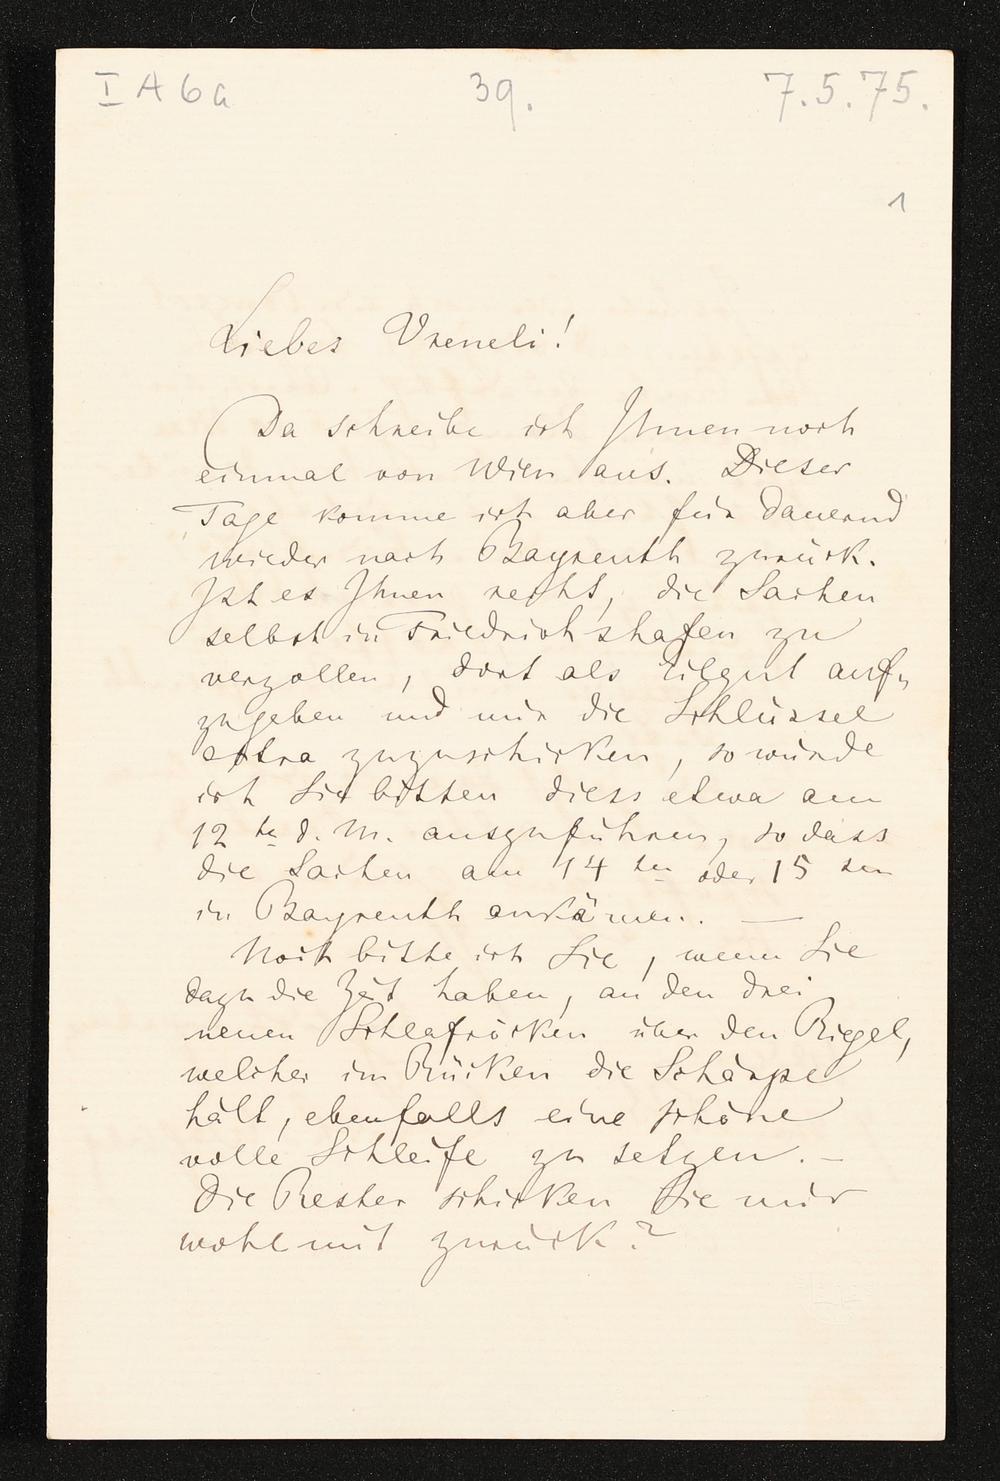 I A 6a 39. 7.5.75.
1
Liebes Vreneli!
Da schreibe ich Ihnen noch
einmal von Wien aus. Dieser
Tage komme ich aber für dauernd
wieder nach Bayreuth zurück.
Ist es Ihnen recht, die Sachen
selbst in Friedrichshafen zu
verzollen, dort als Eilgut auf-
zugeben und mir die Schlüssel
extra zuzuschicken, so würde
ich Sie bitten diess etwa am
12 te d. M. auszuführen, so dass
die Sachen am 14 ten oder 15 ten
in Bayreuth ankämen. —
Noch bitte ich Sie, wenn Sie
dazu die Zeit haben, an den drei
neuen Schlafröcken über den Riegel,
welcher im Rücken die Schärpe
hält, ebenfalls eine schöne
volle Schleife zu setzen. —
Die Rester schicken Sie mir
wohl mit zurück?